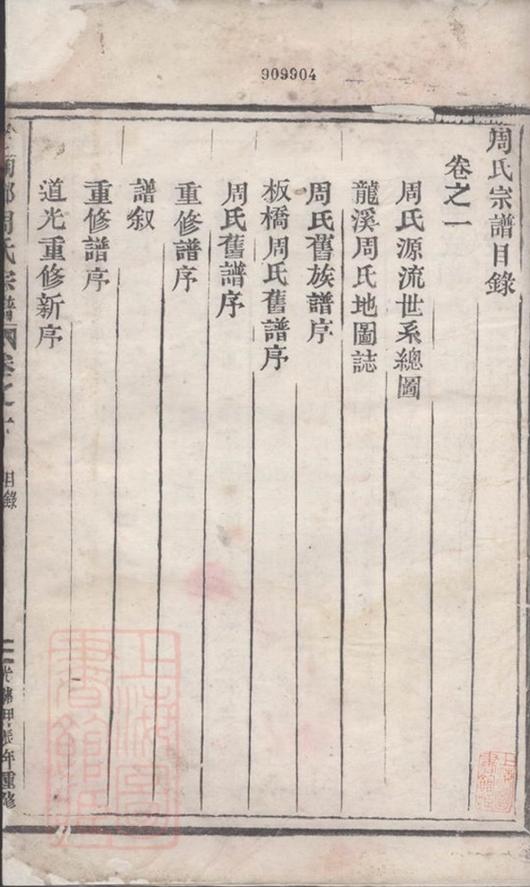 909904
周氏宗譜目錄
卷之一
周氏源流世系總圖
龍溪周氏地圖誌
周氏舊族譜序
板橋周氏舊譜序
周氏舊譜序
重修譜序
譜叙
重修譜序
道光重修新序
周氏宗譜
卷之
目錄
光緒甲辰年重修
上海圖書館藏